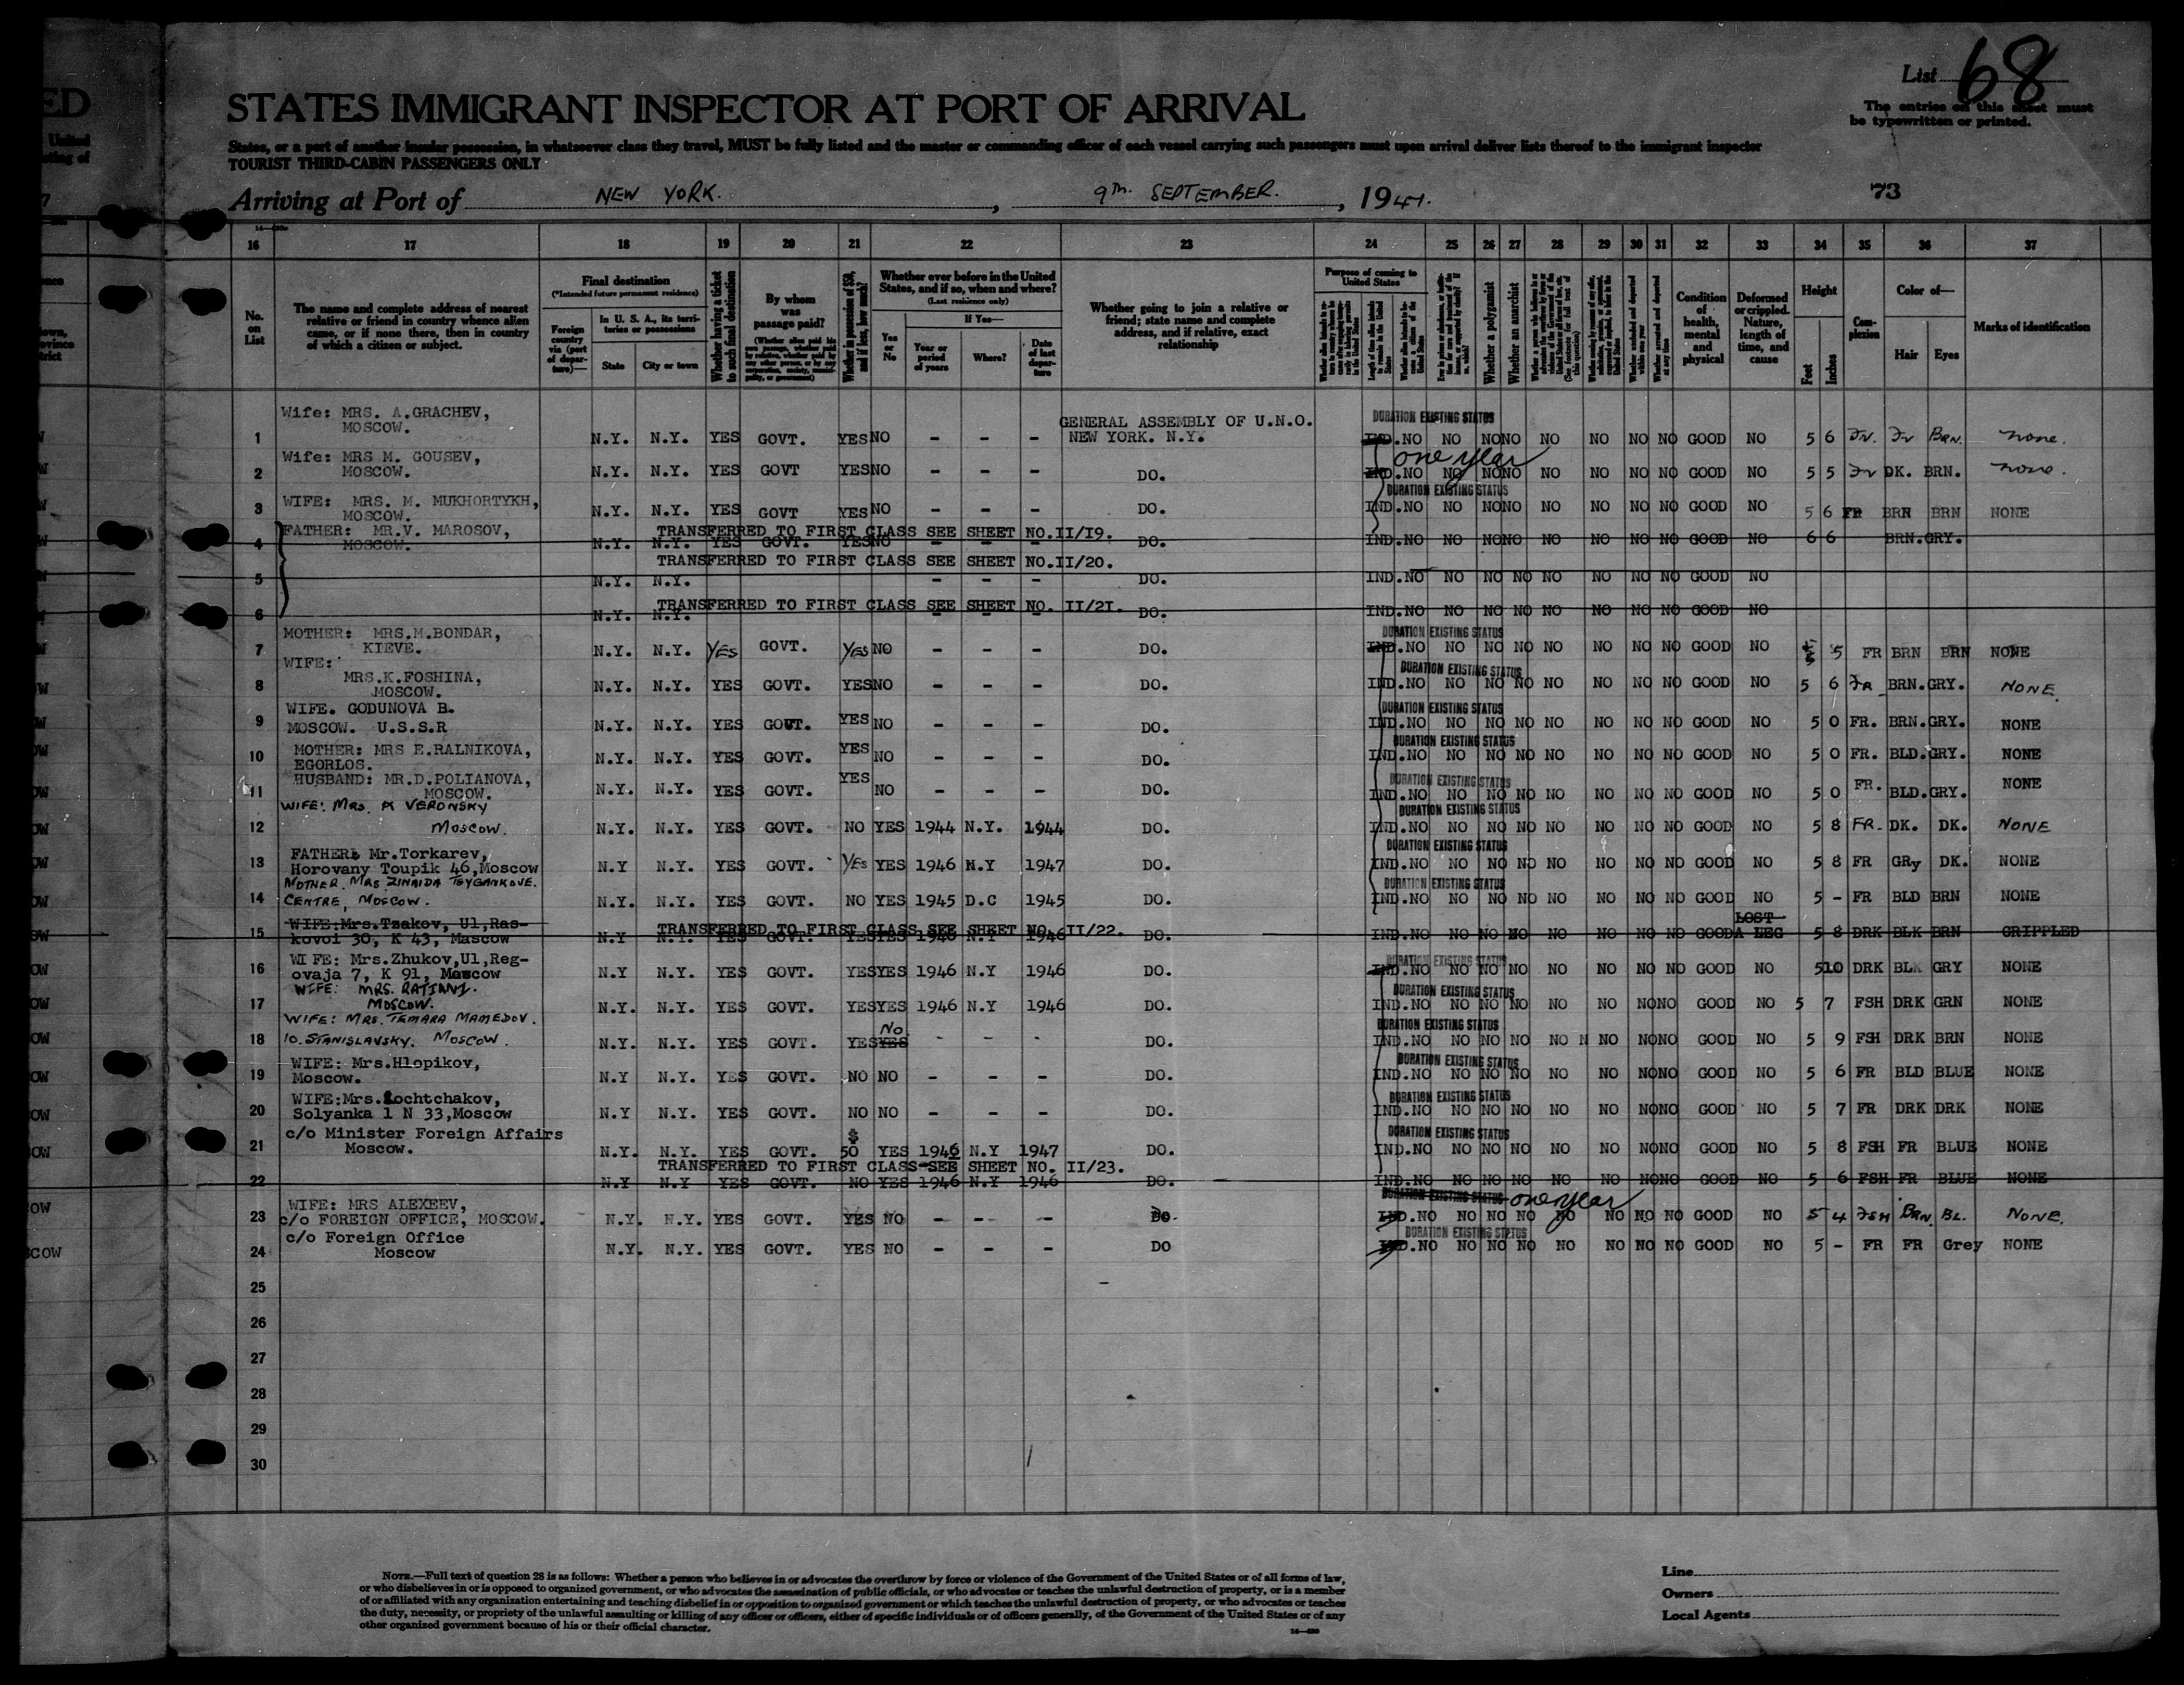 List 68
STATES IMMIGRANT INSPECTOR AT PORT OF ARRIVAL
The entries on this sheet must
be typewritten or printed.
States, or a part of another insular possession, in whatsoever class they travel, MUST be fully listed and the master or commanding officer of each vessel carrying such passengers must upon arrival deliver lists thereof to the immigrant inspector
TOURIST THIRD-CABIN PASSENGERS ONLY
Arriving at Port of NEW YORK. , 9TH. SEPTEMBER. , 19 47. 73
16 17 18 19 20 21 22 23 24 25 26 27 28 29 30 31 32 33 34 35 36 37
No. on List
The name and complete address of nearest
relative or friend in country whence alien
came, or if none there, then in country
of which a citizen or subject.
Final destination
(*Intended future permanent residence)
Foreign country via (port of departure)—
In U. S. A., its territories or possessions
State
City or town
Whether having a ticket to such final destination
By whom was passage paid?
Whether in possession of $50, and if less, how much?
Whether ever before in the United
States, and if so, when and where?
(Last residence only)
Yes or No
If Yes—
Year or period of years
Where?
Date of last departure
Whether going to join a relative or
friend; state name and complete
address, and if relative, exact
relationship
Purpose of coming to United States
Whether a polygamist
Whether an anarchist
Condition of health, mental and physical
Deformed or crippled. Nature, length of time, and cause
Height
Feet
Inches
Complexion
Color of—
Hair
Eyes
Marks of identification
Wife: MRS. A.GRACHEV, GENERAL ASSEMBLY OF U.N.O. DURATION EXISTING STATUS
1 MOSCOW. N.Y. N.Y. YES GOVT. YES NO - - - NEW YORK. N.Y. IND. NO NO NO NO NO NO NO NO GOOD NO 5 6 BRN. none.
one year
Wife: MRS M. GOUSEV,
2 MOSCOW. N.Y. N.Y. YES GOVT YES NO - - - DO. IND. NO NO NO NO NO NO NO NO GOOD NO 5 5 DK. BRN. none.
WIFE: MRS. M. MUKHORTYKH, DURATION EXISTING STATUS
3 MOSCOW. N.Y. N.Y. YES GOVT YES NO - - - DO. IND. NO NO NO NO NO NO NO NO GOOD NO 5 6 FR BRN BRN NONE
FATHER: MR.V. MAROSOV, TRANSFERRED TO FIRST CLASS SEE SHEET NO.II/19.
4 MOSCOW. N.Y. N.Y. YES GOVT. YES NO - - DO. IND. NO NO NO NO NO NO NO NO GOOD NO 6 6 BRN. GRY.
TRANSFERRED TO FIRST CLASS SEE SHEET NO.II/20.
5 N.Y. N.Y. - - - DO. IND. NO NO NO NO NO NO NO NO GOOD NO
TRANSFERRED TO FIRST CLASS SEE SHEET NO. II/21.
6 N.Y. N.Y. - - - DO. IND. NO NO NO NO NO NO NO NO GOOD NO
MOTHER: MRS.M.BONDAR, DURATION EXISTING STATUS
7 KIEVE. N.Y. N.Y. YES GOVT. YES NO - - - DO. IND. NO NO NO NO NO NO NO NO GOOD NO 5 5 FR BRN BRN NONE
WIFE: DURATION EXISTING STATUS
MRS.K.FOSHINA,
8 MOSCOW. N.Y. N.Y. YES GOVT. YES NO - - - DO. IND. NO NO NO NO NO NO NO NO GOOD NO 5 6 FR BRN. GRY. NONE
WIFE. GODUNOVA B. DURATION EXISTING STATUS
9 MOSCOW. U.S.S.R N.Y. N.Y. YES GOVT. YES NO - - - DO. IND. NO NO NO NO NO NO NO NO GOOD NO 5 0 FR. BRN. GRY. NONE
MOTHER: MRS E.RALNIKOVA, DURATION EXISTING STATUS
10 EGORLOS. N.Y. N.Y. YES GOVT. YES NO - - - DO. IND. NO NO NO NO NO NO NO NO GOOD NO 5 0 FR. BLD. GRY. NONE
HUSBAND: MR.D.POLIANOVA, DURATION EXISTING STATUS
11 MOSCOW. N.Y. N.Y. YES GOVT. YES NO - - - DO. IND. NO NO NO NO NO NO NO NO GOOD NO 5 0 FR. BLD. GRY. NONE
WIFE: MRS. A VERONSKY DURATION EXISTING STATUS
12 MOSCOW. N.Y. N.Y. YES GOVT. NO YES 1944 N.Y. 1944 DO. IND. NO NO NO NO NO NO NO NO GOOD NO 5 8 FR. DK. DK. NONE
FATHER: Mr.Torkarev, DURATION EXISTING STATUS
13 Horovany Toupik 46,Moscow N.Y N.Y. YES GOVT. YES YES 1946 N.Y 1947 DO. IND. NO NO NO NO NO NO NO NO GOOD NO 5 8 FR GRy DK. NONE
MOTHER. MRS ZINAIDA TSYGANKOVE. DURATION EXISTING STATUS
14 CENTRE, MOSCOW. N.Y. N.Y. YES GOVT. NO YES 1945 D.C 1945 DO. IND. NO NO NO NO NO NO NO NO GOOD NO 5 - FR BLD BRN NONE
WIFE:Mrs.Tzakov, Ul,Ras- TRANSFERRED TO FIRST CLASS SEE SHEET NO. II/22. LOST
15 kovoi 30, K 43, Mascow N.Y N.Y. YES GOVT. YES YES 1946 N.Y 1946 DO. IND. NO NO NO NO NO NO NO NO GOOD A LEG 5 8 DRK BLK BRN CRIPPLED
WIFE: Mrs.Zhukov,Ul,Reg- DURATION EXISTING STATUS
16 ovaja 7, K 91, Moscow N.Y N.Y. YES GOVT. YES YES 1946 N.Y 1946 DO. IND. NO NO NO NO NO NO NO NO GOOD NO 5 10 DRK BLK GRY NONE
WIFE: MRS. RATIANI. DURATION EXISTING STATUS
17 MOSCOW. N.Y. N.Y. YES GOVT. YES YES 1946 N.Y 1946 DO. IND. NO NO NO NO NO NO NO NO GOOD NO 5 7 FSH DRK GRN NONE
WIFE: MRS. TEMARA MAMEDOV. No. DURATION EXISTING STATUS
18 10. STANISLAVSKY. MOSCOW. N.Y. N.Y. YES GOVT. YES YES - - - DO. IND. NO NO NO NO NO N NO NO NO GOOD NO 5 9 FSH DRK BRN NONE
WIFE: Mrs.Hlopikov, DURATION EXISTING STATUS
19 Moscow. N.Y N.Y. YES GOVT. NO NO - - - DO. IND. NO NO NO NO NO NO NO NO GOOD NO 5 6 FR BLD BLUE NONE
WIFE:Mrs.Lochtchakov, DURATION EXISTING STATUS
20 Solyanka 1 N 33,Moscow N.Y N.Y. YES GOVT. NO NO - - - DO. IND. NO NO NO NO NO NO NO NO GOOD NO 5 7 FR DRK DRK NONE
c/o Minister Foreign Affairs $ DURATION EXISTING STATUS
21 Moscow. N.Y. N.Y. YES GOVT. 50 YES 1946 N.Y 1947 DO. IND. NO NO NO NO NO NO NO NO GOOD NO 5 8 FSH FR BLUE NONE
TRANSFERRED TO FIRST CLASS SEE SHEET NO. II/23.
22 N.Y N.Y YES GOVT. NO YES 1946 N.Y 1946 DO. IND. NO NO NO NO NO NO NO NO GOOD NO 5 6 FSH FR BLUE NONE
WIFE: MRS ALEXEEV, DURATION EXISTING STATUS one year
23 c/o FOREIGN OFFICE, MOSCOW. N.Y. N.Y. YES GOVT. YES NO - - - Do. IND. NO NO NO NO NO NO NO NO GOOD NO 5 4 FSH BRN. BL. NONE.
c/o Foreign Office DURATION EXISTING STATUS
24 Moscow N.Y. N.Y. YES GOVT. YES NO - - - DO IND. NO NO NO NO NO NO NO NO GOOD NO 5 - FR FR Grey NONE
25
26
27
28
29
30
NOTE.—Full text of question 28 is as follows: Whether a person who believes in or advocates the overthrow by force or violence of the Government of the United States or of all forms of law,
or who disbelieves in or is opposed to organized government, or who advocates the assassination of public officials, or who advocates or teaches the unlawful destruction of property, or is a member
of or affiliated with any organization entertaining and teaching disbelief in or opposition to organized government or which teaches the unlawful destruction of property, or who advocates or teaches
the duty, necessity, or propriety of the unlawful assaulting or killing of any officer or officers, either of specific individuals or of officers generally, of the Government of the United States or of any
other organized government because of his or their official character.
Line
Owners
Local Agents